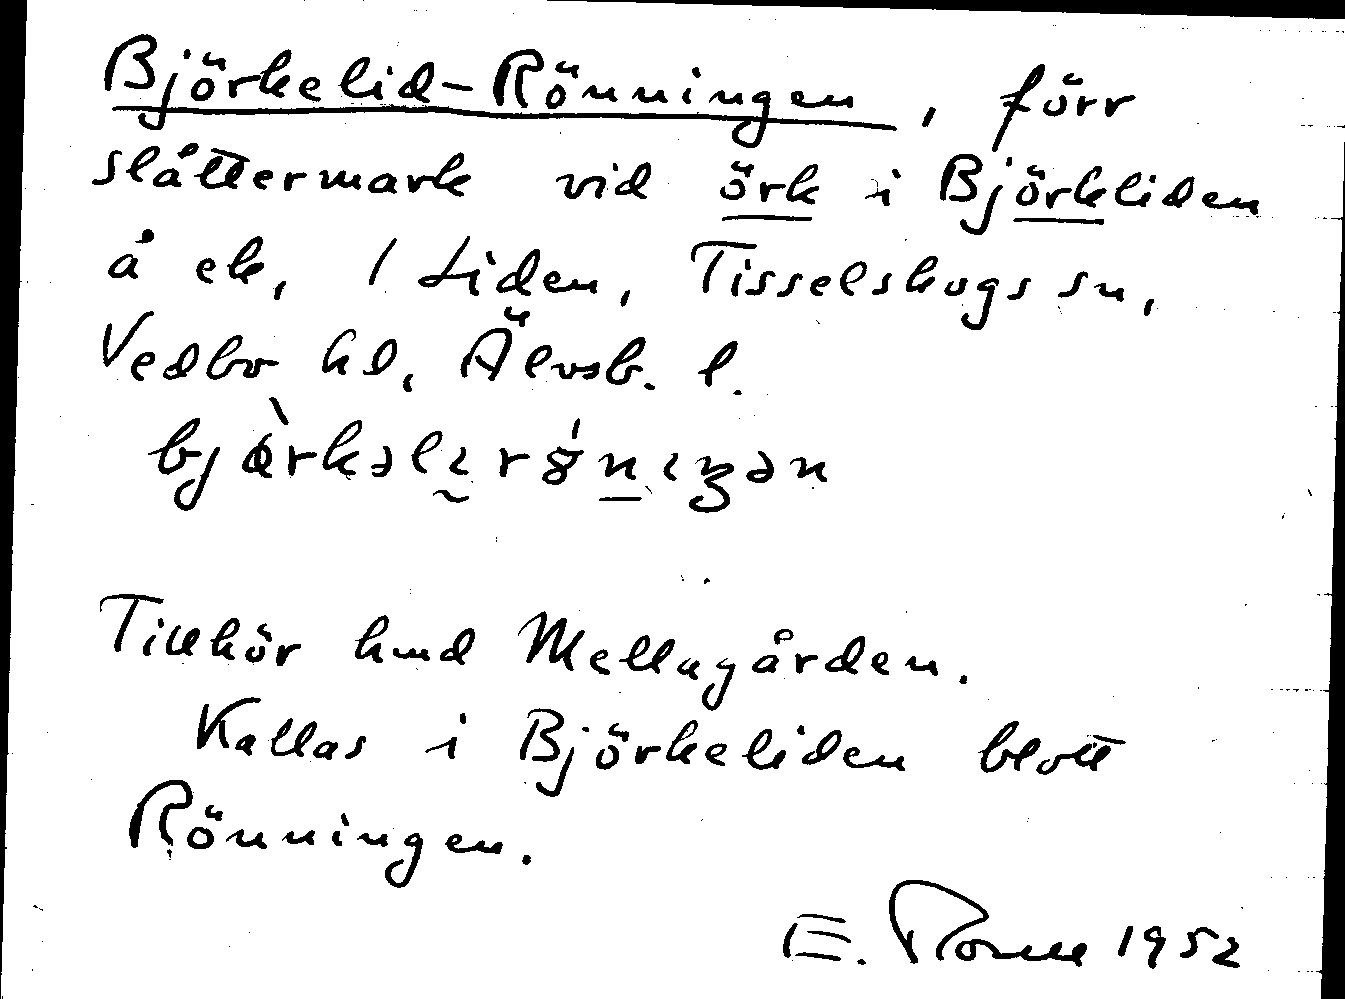 Björkelid-Rönningen, förr
slåttermark vid örk i Björkliden
å ek, 1 Liden, Tisselskogs sn,
Vedbo hd, Älvsb. l.
Tillhör hmd Mellagården.
Kallas i Björkeliden blott
Rönningen.
E. 1952